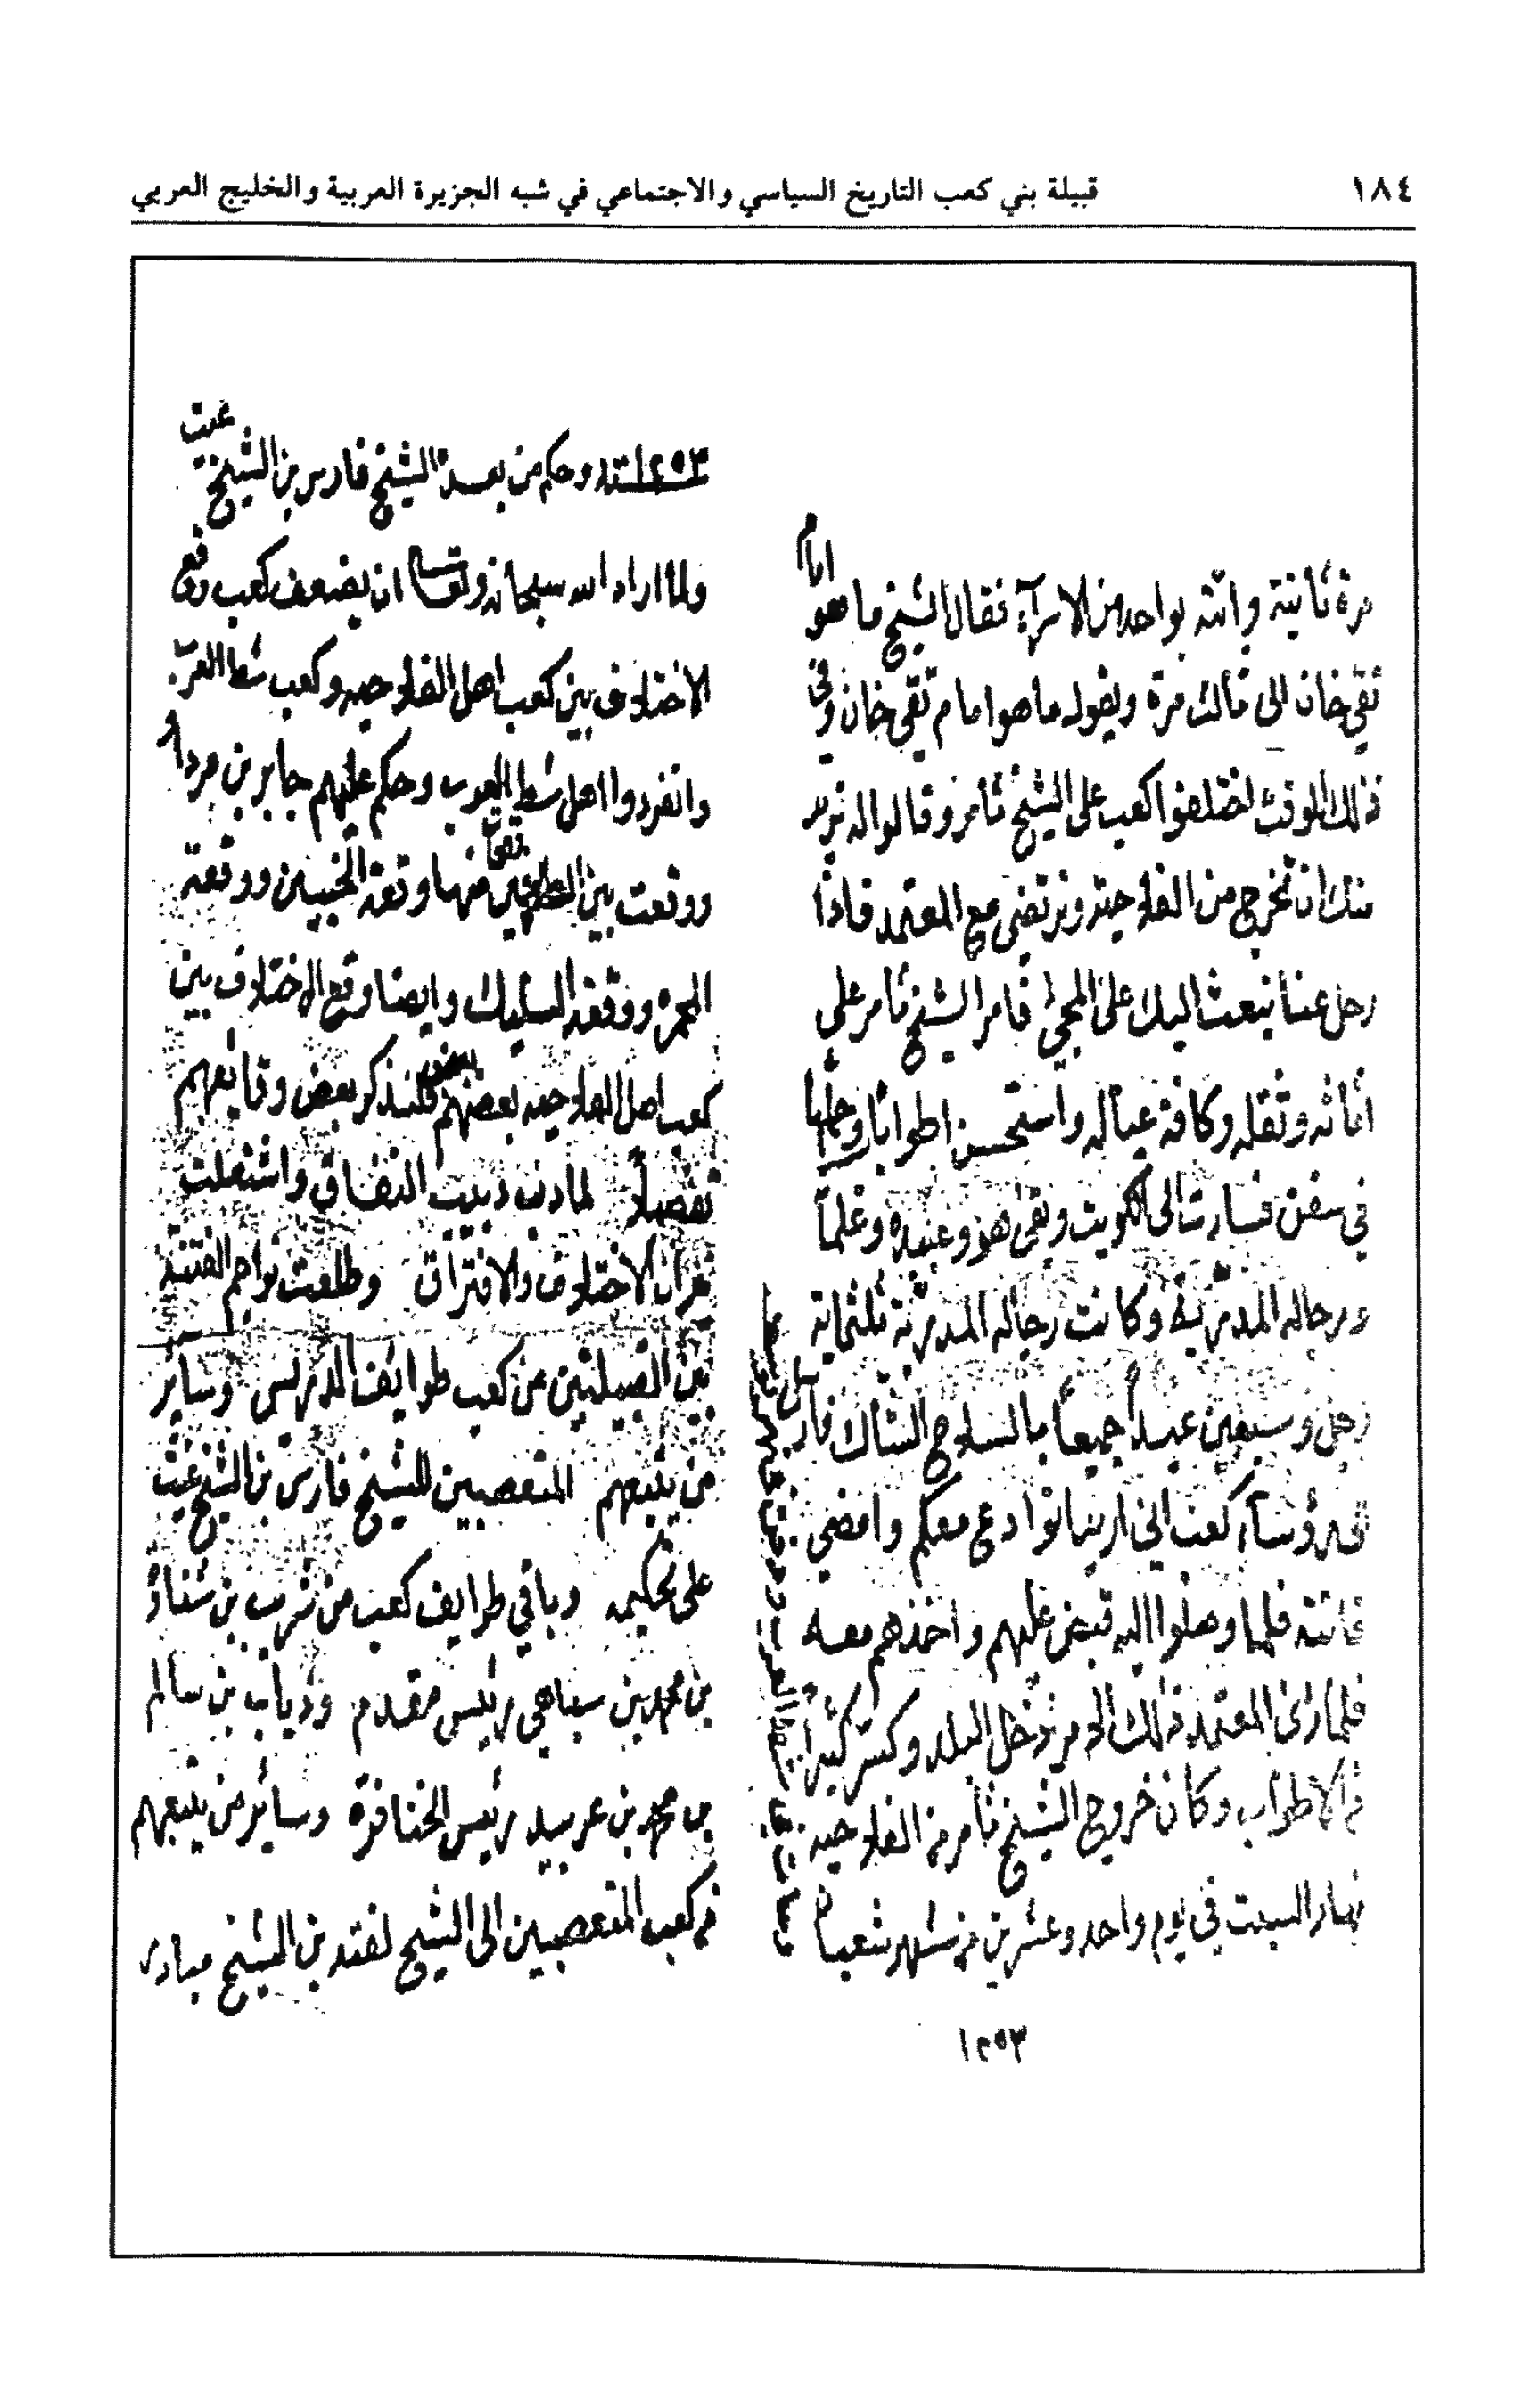 ١٨٤
قبيلة بني كعب التاريخ السياسي والاجتماعي في شبه الجزيرة العربية والخليج العربي
مرة ثانية واتته بواحد من الاسرآء فقال الشيخ ما هو امام
تقي خان الى ثالث مرة ويقول ما هو امام تقي خان وفي
ذلك الوقت اختلفوا كعب على الشيخ ثامر وقالوا له نريد
منك ان تخرج من الفلاحيه ونرتضي مع المعتمد فاذا
رحل عنا نبعث اليك على المجئ فامر الشيخ ثامر على
اثاثه وثقله وكافة عياله واستحسن اطوابا وحملها
في سفن فسارت الى الكويت وبقى هو وعبيده وغلما
ورجاله وكانت رجاله ثلثماية
رجل وسبعين عبداً جميعاً بالسلاح الشاك فارسل
الى رؤساء كعب اني اريد اتوادع معكم وامضي
فاتته فلما وصلوا اليه قبض عليهم واخذهم معه
فلما رأى المعتمد ذلك الامر دخل البلد وكسر كثيرا
من الاطواب وكان خروج الشيخ ثامر من الفلاحيه
نهار السبت في يوم واحد وعشرين من شهر شعبان
١٢٥٣
١٢٥٣ سنه وحكم من بعده الشيخ فارس بن الشيخ غيث
ولما اراد الله سبحانه وتعالى ان يضعف كعب وقع
الاختلاف بين كعب اهل الفلاحيه وكعب شط العرب
وانفردوا اهل شط العرب وحكم عليهم جابر بن مرداو
ووقعت بين الطرفين منها وقعة ووقعة
المحمره ووقعة وايضا وقع الاختلاف بين
كعب اهل الفلاحيه بعضهم بعض فلنذكر بعض وقايعهم
تفصيلاً لما دبت دبيب النفاق واشتعلت
نيران الاختلاف والافتراق وطلعت الفتنة
بين القبيلتين من كعب طوايف الدريس وساير
من يتبعهم المتعصبين للشيخ فارس بن الشيخ غيث
على تحكيمه وباقي طوايف كعب من بن
بن محمد بن رئيس مقدم وذياب بن سالم
بن محمد بن رئيس الخنافرة وساير من يتبعهم
من كعب المتعصبين الى الشيخ لفته بن الشيخ مبادر